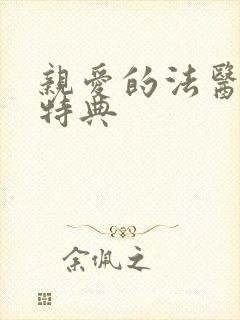 親愛的法醫
特典
余佩之